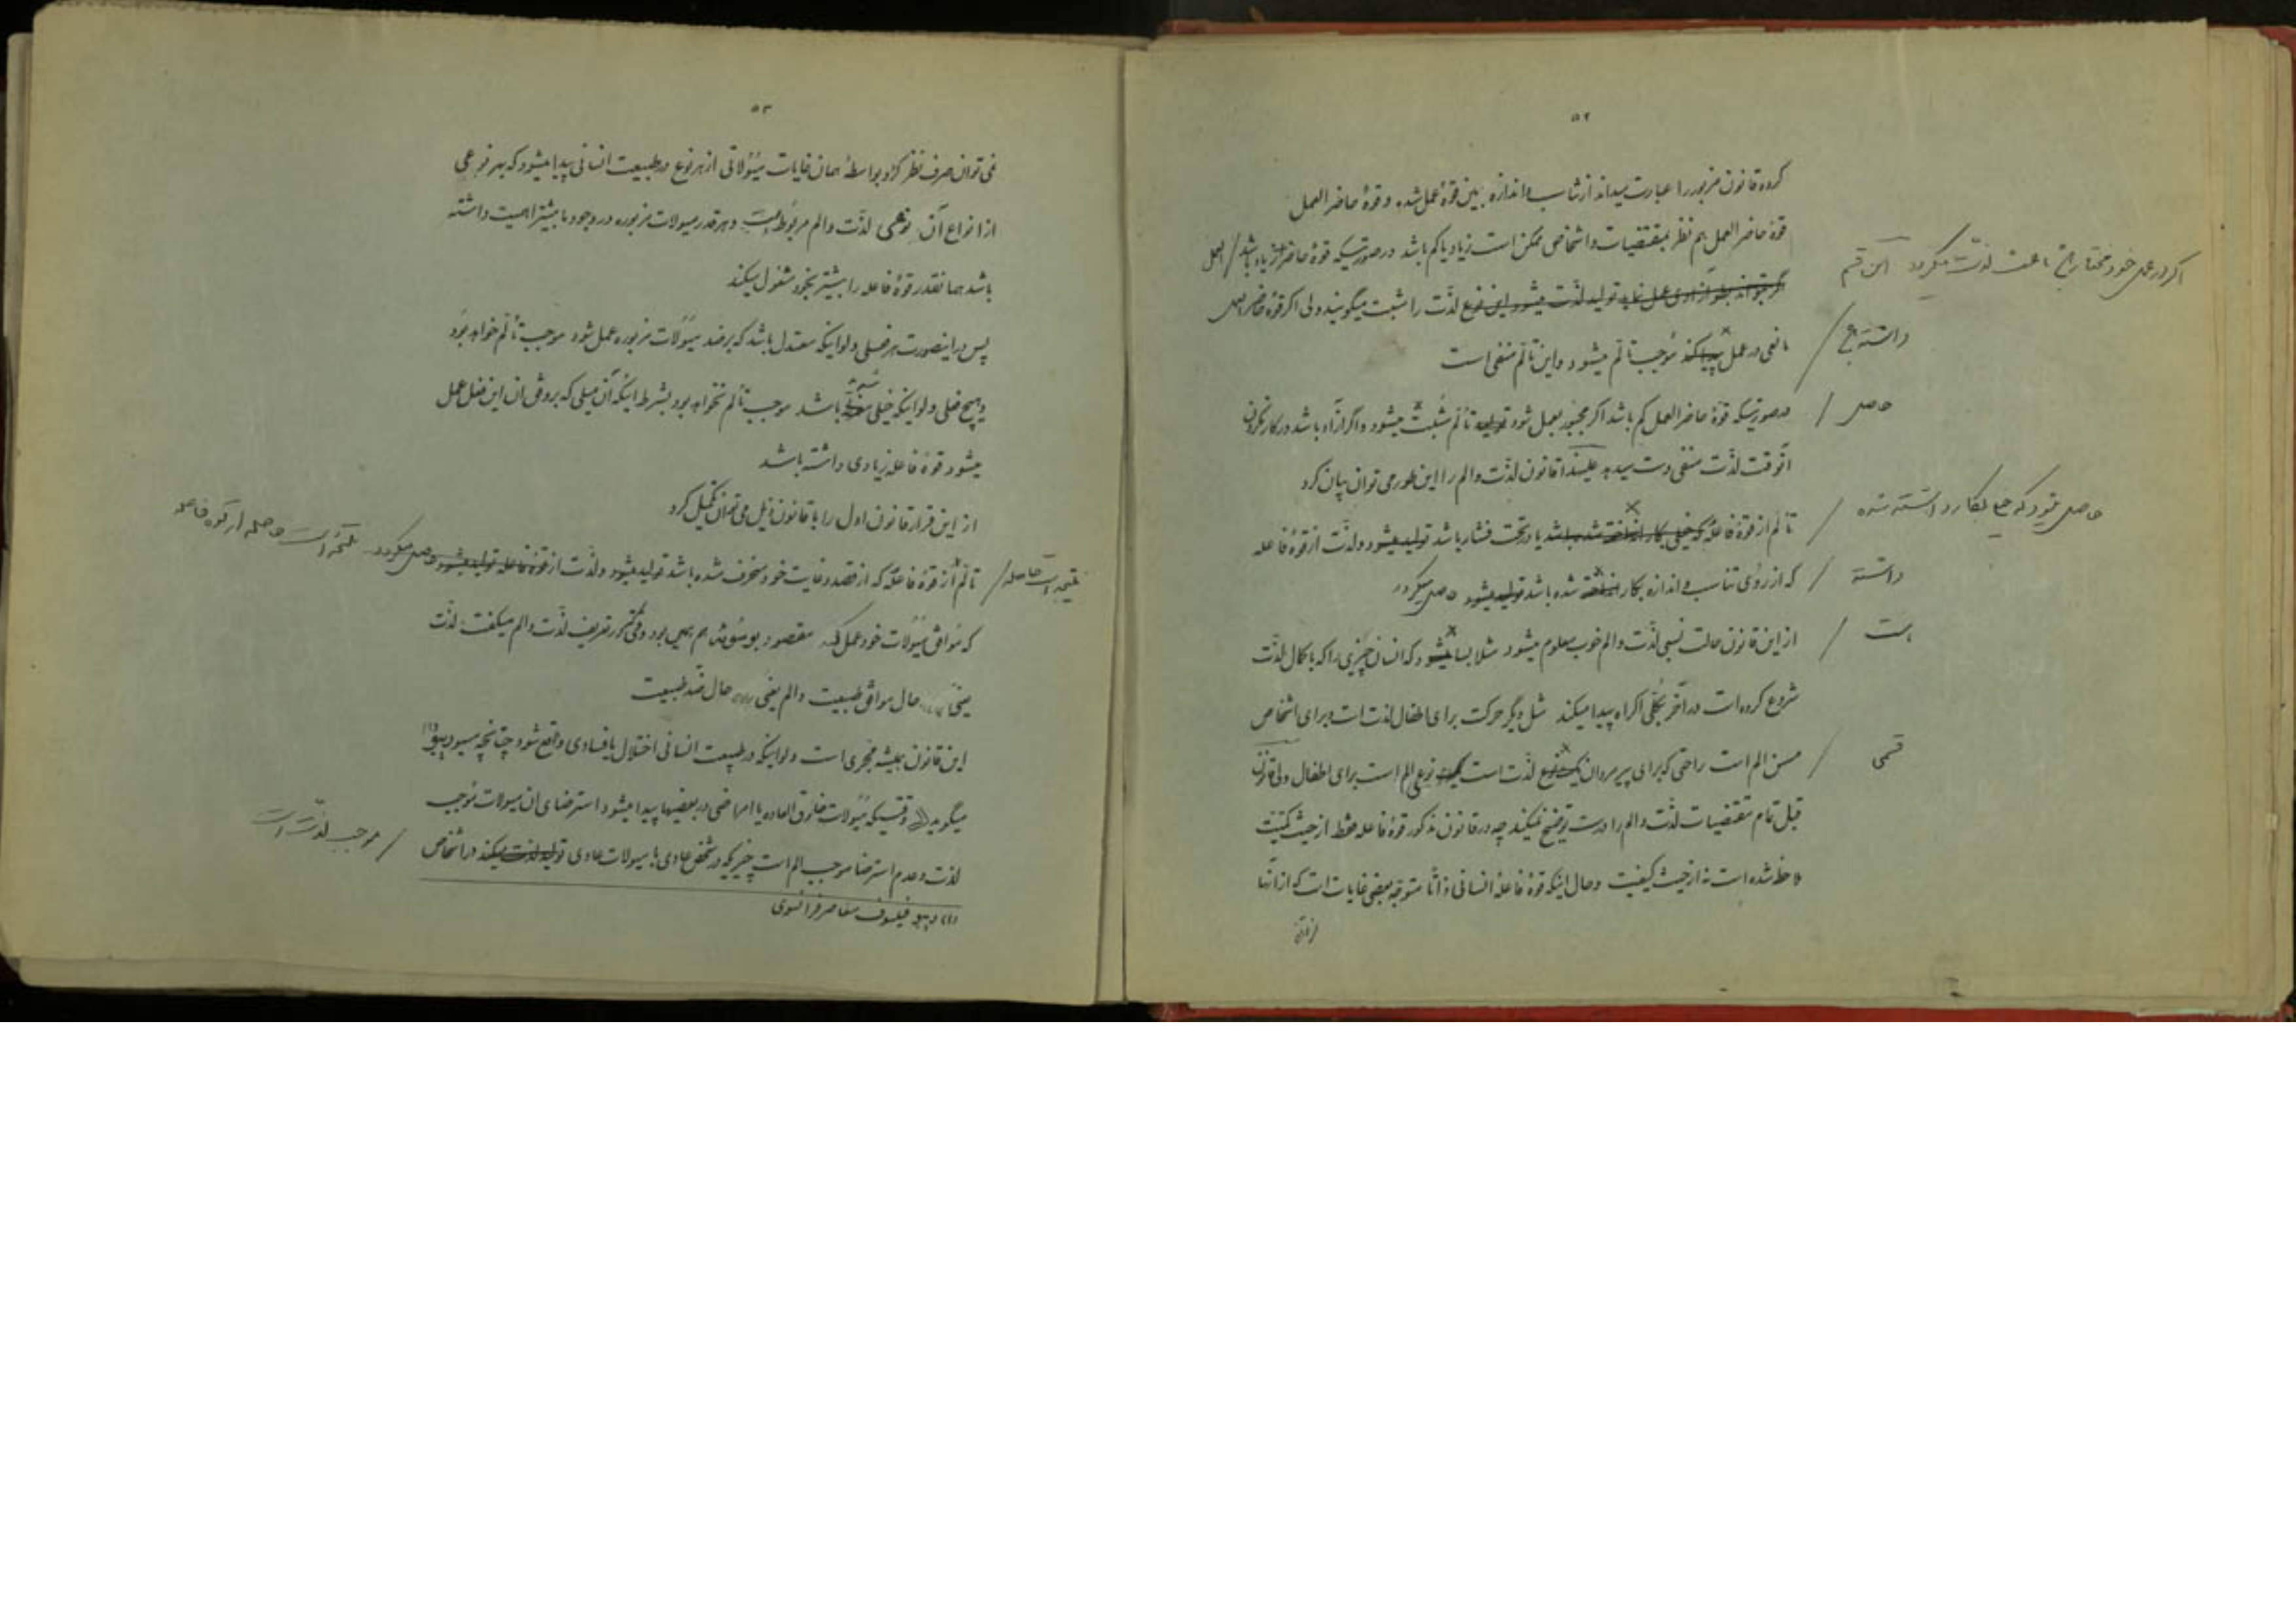 ۵۲
کرده قانون مزبور را عبارت میداند از تناسب و اندازه بین قوهٔ عمل شده و قوهٔ حاضر العمل
قوهٔ حاضر العمل هم نظر بمقتضیات و اشخاص ممکن است زیاد یا کم باشد در صورتیکه قوهٔ حاضر زیاد باشد / العمل
اگر در عمل خود مختار باعث لذت میگردد این قسم
اگر بتواند بطور آزادی عمل نماید تولید لذت میشود این نوع لذت را مثبت میگویند ولی اگر قوهٔ حاضر العمل
مانعی در عمل پیدا کند موجب تألم میشود و این تألم منفی است / داشته
در صورتیکه قوهٔ حاضر العمل کم باشد اگر مجبور بعمل شود تولید تألم مثبت میشود و اگر آزاد باشد در کار نکردن / حاصل
آنوقت لذت منفی دست میدهد علیهذا قانون لذت و الم را این طور می توان بیان کرد
تألم از قوهٔ فاعله که خیلی بکار انداخته شده باشد یا در تحت فشار باشد تولید میشود و لذت از قوهٔ فاعله / حاصل میشود که بکار داشته شده
که از روی تناسب و اندازه بکار انداخته شده باشد تولید میشود حاصل میگردد / داشته
از این قانون حالت نسبی لذت و الم خوب معلوم میشود مثلا بسا میشود که انسان چیزی را که با کمال لذت / است
شروع کرده است در آخر بکلی اکراه پیدا میکند مثل دیگر حرکت برای اطفال لذت است و برای اشخاص
مسن الم است راحتی که برای پیرمردان یکنوع لذت است نوعی الم است برای اطفال ولی قانون / قسمی
قبل تمام مقتضیات لذت و الم را درست توضیح نمیکند چه در قانون مذکور قوهٔ فاعله فقط از حیث کمیت
ملاحظه شده است نه از حیث کیفیت و حال اینکه قوهٔ فاعلهٔ انسانی ذاتا متوجه بعضی غایات است که از آنها
۵۳
نمی توان صرف نظر کرد و بواسطهٔ همان غایات میولاتی از هر نوع در طبیعت انسانی پیدا میشود که بهر نوعی
از انواع آن نوعی لذت و الم مربوط است و هر قدر میولات مزبوره در وجود ما بیشتر اهمیت داشته
باشد همانقدر قوهٔ فاعله را بیشتر بخود مشغول میکند
پس در اینصورت هر فعلی ولو اینکه معتدل باشد که بر ضد میولات مزبوره عمل شود موجب تألم خواهد بود
و هیچ فعلی ولو اینکه خیلی باشد موجب تألم نخواهد بود بشرط اینکه آن میلی که بر وفق آن این فعل عمل
میشود قوهٔ فاعلهٔ زیادی داشته باشد
از این قرار قانون اول را با قانون ذیل می توان تکمیل کرد
تألم از قوهٔ فاعلهٔ که از قصد و غایت خود منحرف شده باشد تولید میشود و لذت از قوهٔ فاعله تولید میشود حاصل میگردد / نتیجه است حاصله
که موافق میولات خود عمل کند مقصود بوسوئه هم همین بود وقتی که در تعریف لذت و الم میگفت: لذت
یعنی حال موافق طبیعت و الم یعنی حال ضد طبیعت
این قانون همیشه مجری است ولو اینکه در طبیعت انسانی اختلال یا فسادی واقع شود چنانچه مسیو ریبو (۱)
میگوید «وقتیکه میولات خارق العاده یا امراضی در بعضیها پیدا میشود استرضای آن میولات موجب
لذت و عدم استرضا موجب الم است چیزیکه در شخص عادی با میولات عادی تولید لذت میکند در اشخاص / موجب لذت است
(۱) ریبو فیلسوف معاصر فرانسوی